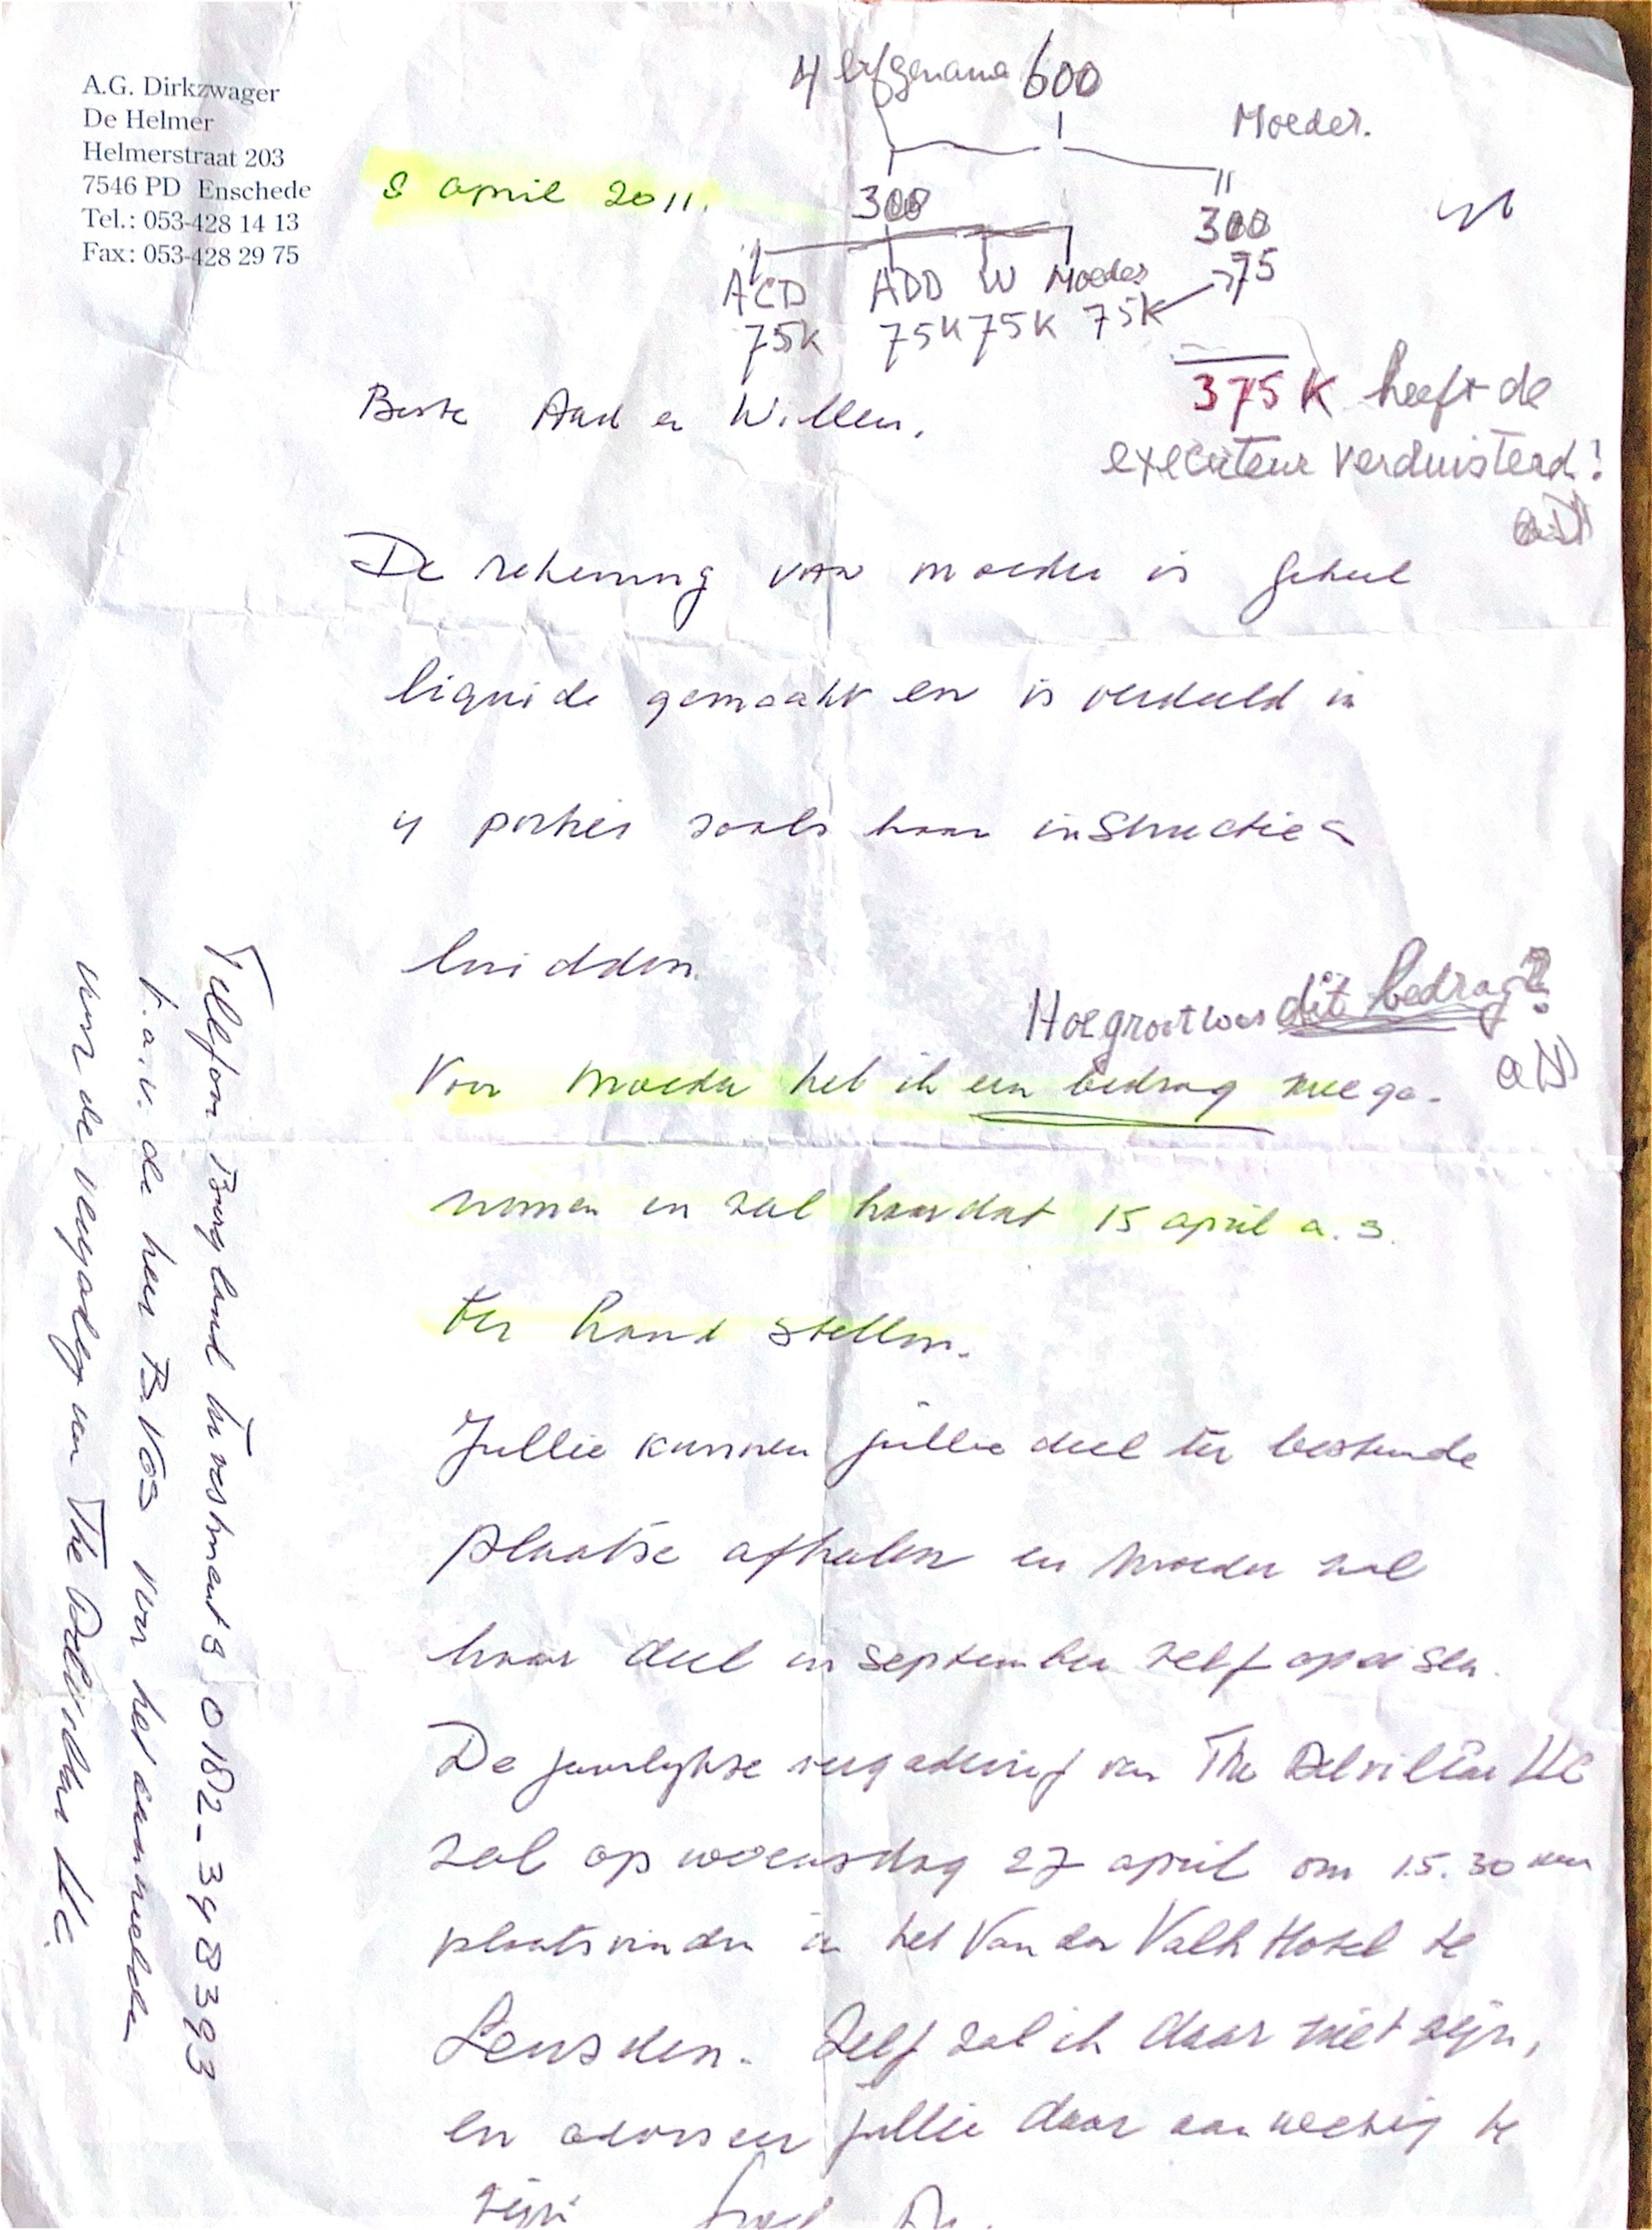 A.G. Dirkzwager
De Helmer
Helmerstraat 203
7546 PD Enschede
Tel.: 053-428 14 13
Fax: 053-428 29 75
4 erfgename 600
Moeder.
8 april 2011.
300
300
ACD ADD W Moeder
75
75K 75K 75K 75K
375K heeft de
executeur verduisterd!
Beste Aad en Willem,
De rekening van moeder is geheel
liquide gemaakt en is verdeeld in
4 porties zoals haar instructies
luidden.
Hoe groot was dit bedrag?
Voor moeder heb ik een bedrag meege-
nomen en zal haar dat 15 april a.s.
ter hand stellen.
Jullie kunnen jullie deel ter bestemde
plaatse afhalen en moeder zal
haar deel in september zelf opeisen.
De jaarlijkse vergadering van The Delvillar LLC
zal op woensdag 27 april om 15.30 uur
plaatsvinden in het Van der Valk Hotel te
Leusden. Zelf zal ik daar niet zijn,
en adviseer jullie daar aanwezig te
zijn.
Telefoon Burgland Investments 0182-348393
t.a.v. de heer B. Vos voor het aanmelden
voor de vergadering van The Delvillar LLC.